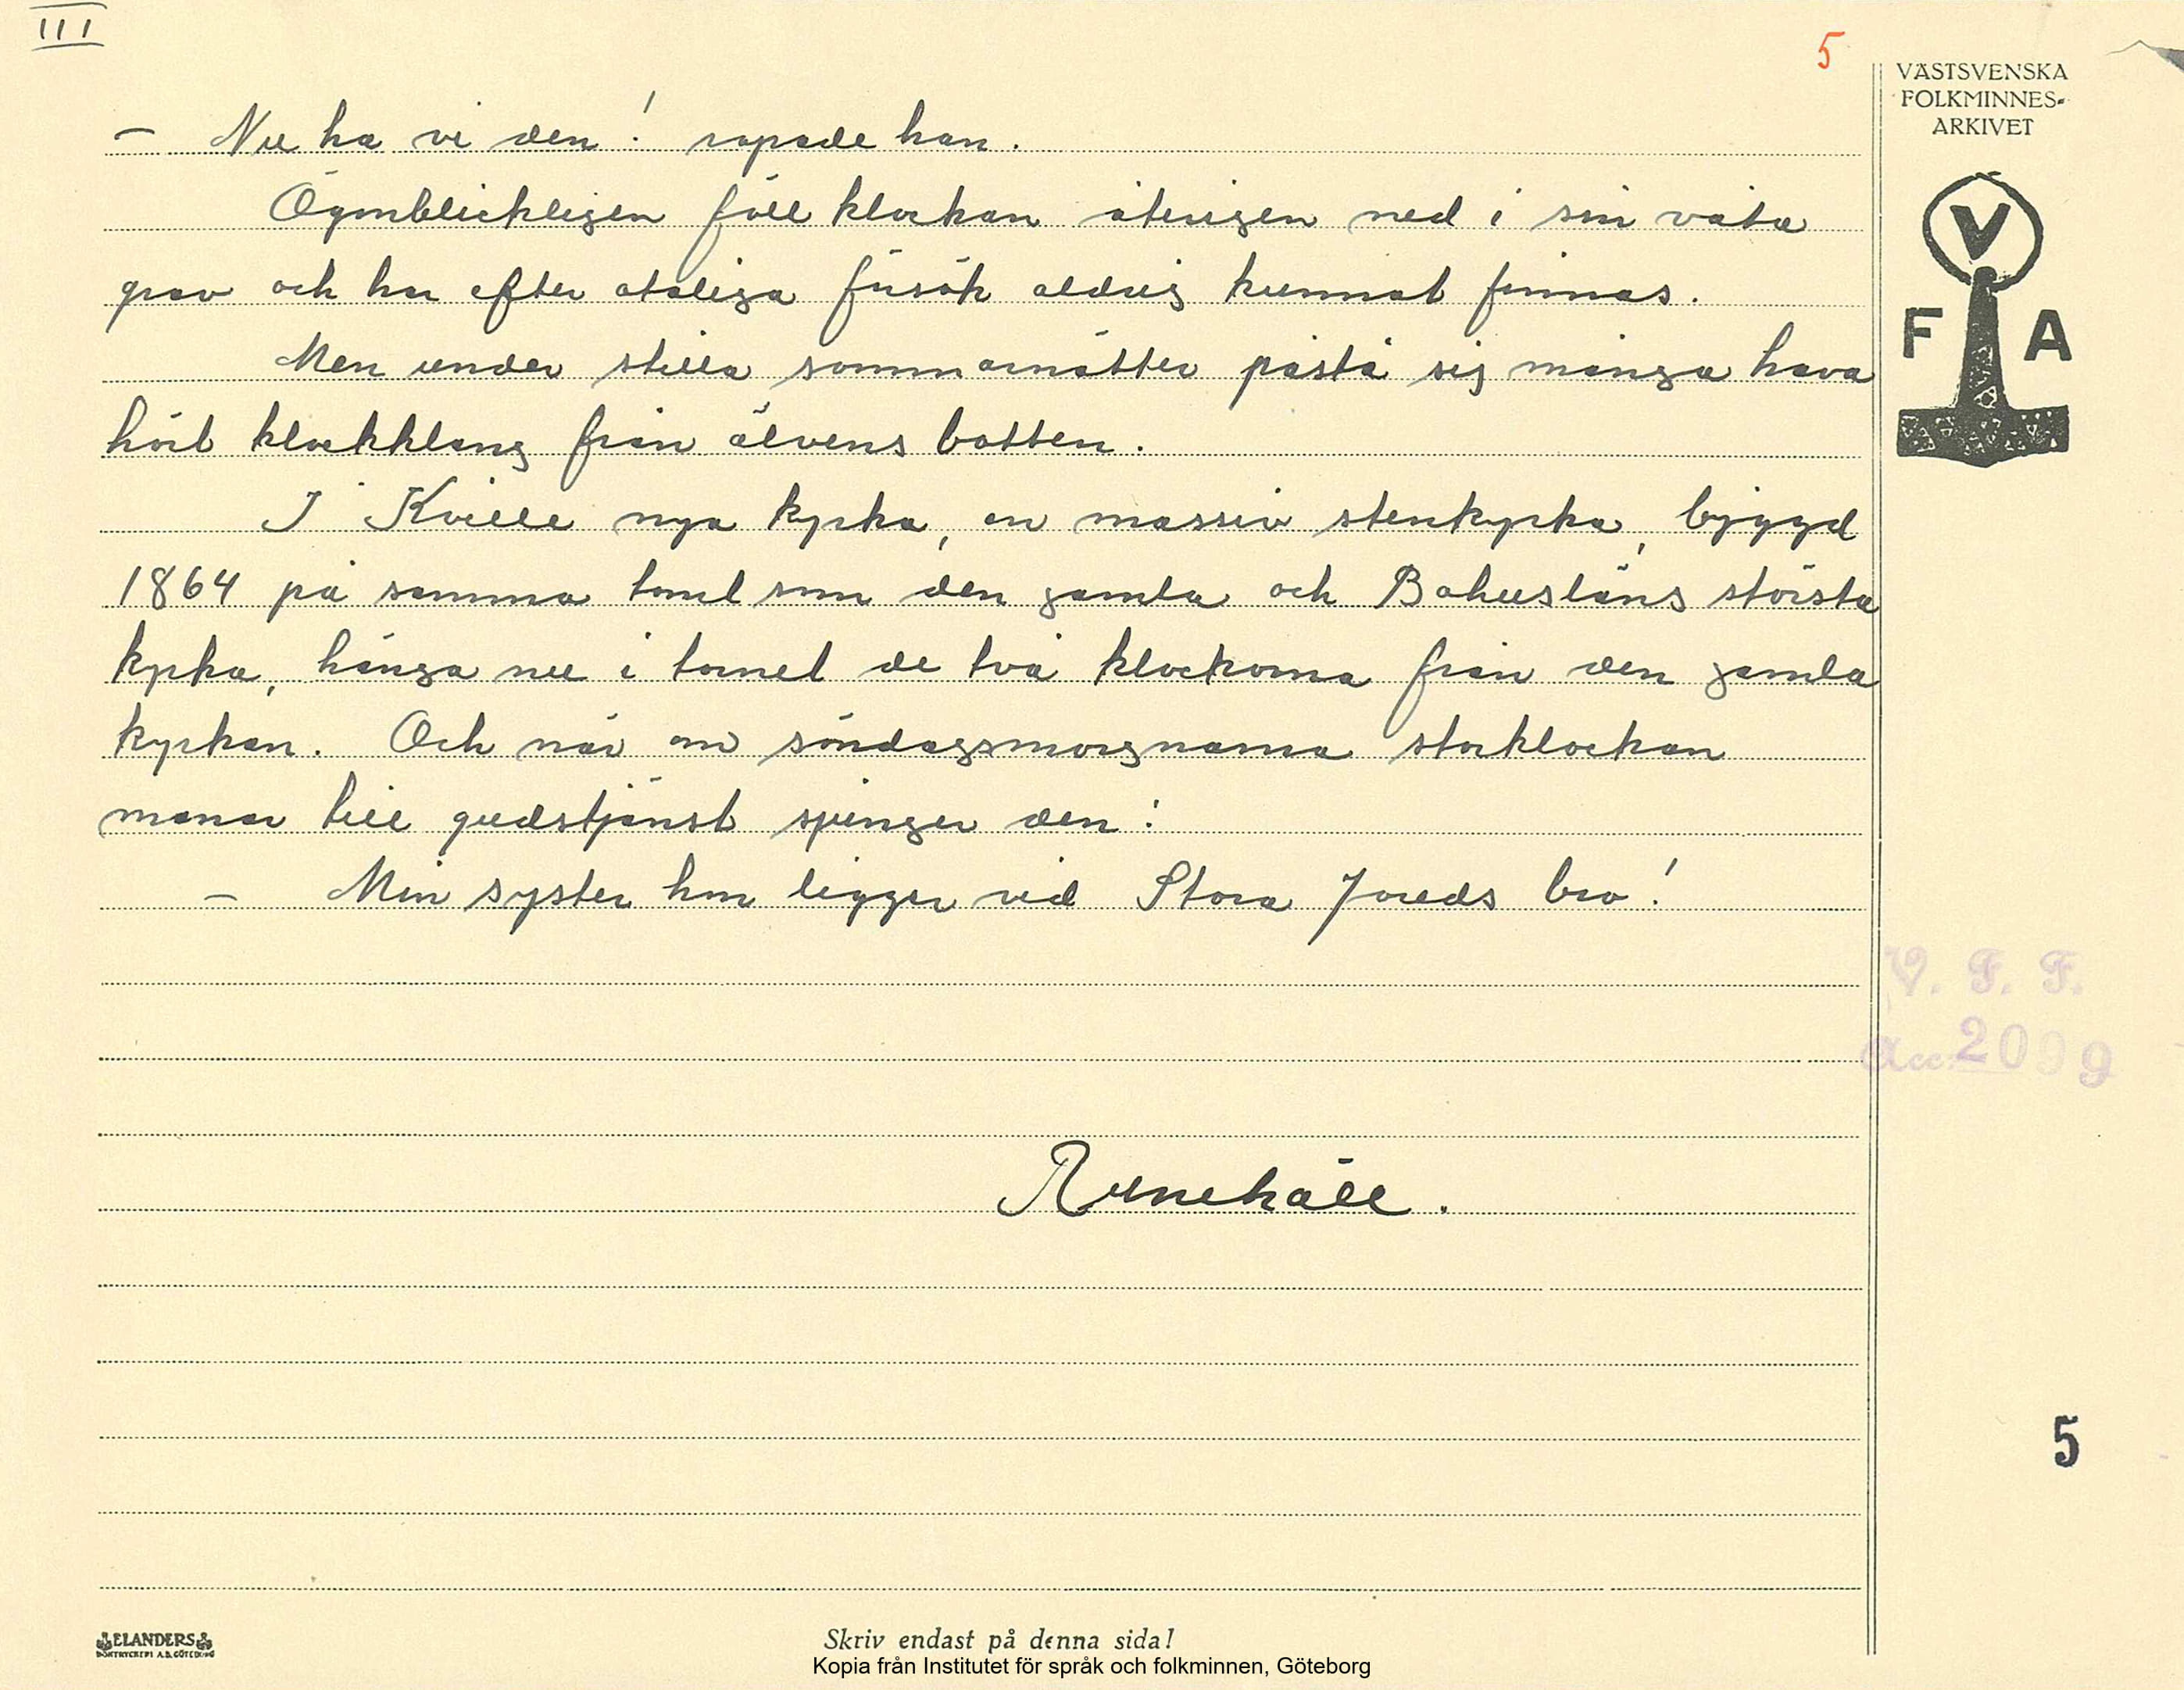 III
5
VÄSTSVENSKA
FOLKMINNES-
ARKIVET
V
F A
– Nu ha vi den! ropade han.
Ögonblickligen föll klockan återigen ned i sin våta
grav och har efter otaliga försök aldrig kunnat finnas.
Men under stilla sommarnätter påstå sig många hava
hört klockklang från älvens botten.
I Kville nya kyrka, en massiv stenkyrka, byggd
1864 på samma tomt som den gamla och Bohusläns största
kyrka, hänga nu i tornet de två klockorna från den gamla
kyrkan. Och när om söndagsmorgnarna storklockan
manar till gudstjänst sjunger den:
– Min syster hon ligger vid Stora Joreds bro!
V. F. F.
Acc. 2099
Runehäll.
5
ELANDERS
BOKTRYCKERI A.B. GÖTEBORG
Skriv endast på denna sida!
Kopia från Institutet för språk och folkminnen, Göteborg